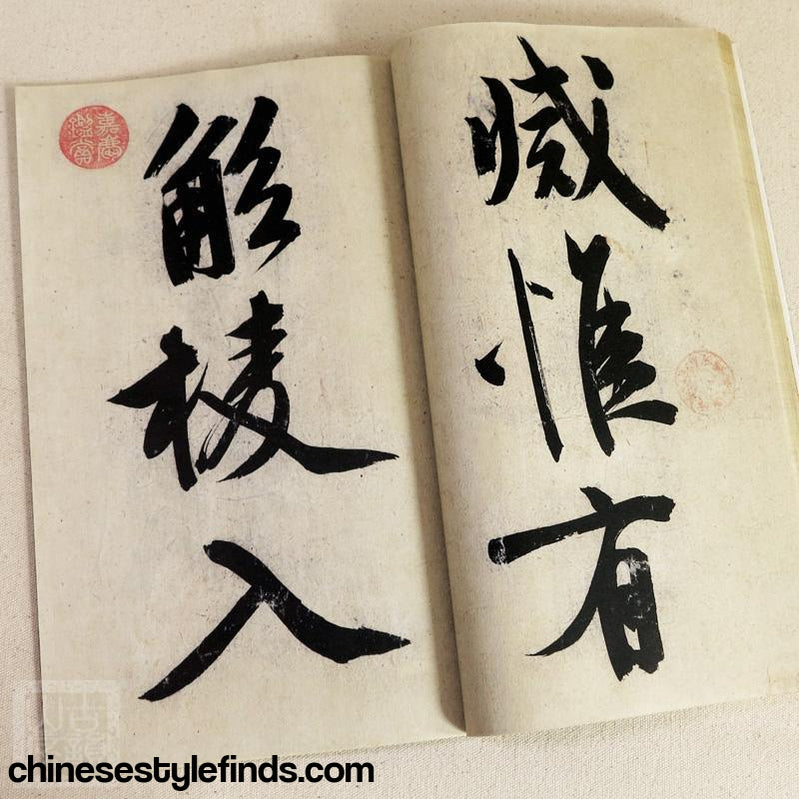 惟有
觚棱入
嘉慶鑑賞
chinesestylefinds.com